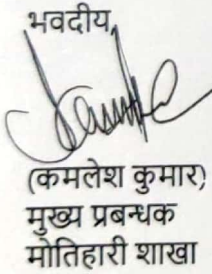 भवदीय,
(कमलेश कुमार)
मुख्य प्रबन्धक
मोतिहारी शाखा